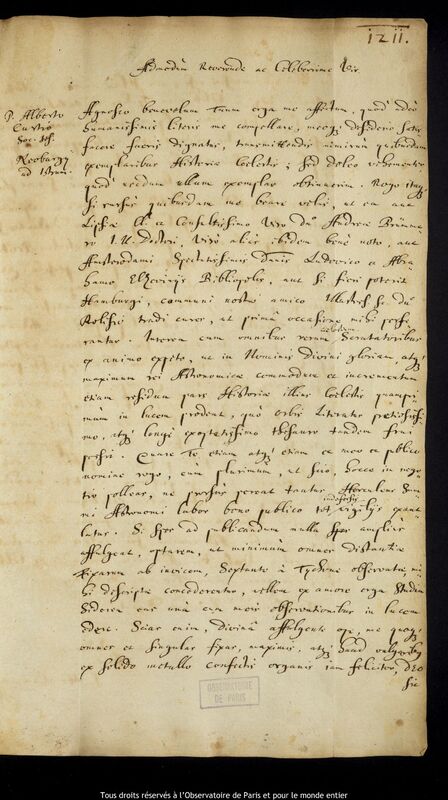 1211.
Admodum Reverende ac Celeberrime Vir.
P. Alberto
Curtio
Soc. Jes.
Neoburgi
ad Istrum.
Agnosco benevolum Tuum erga me affectum, quod adeo
humanissimis literis me compellare, meoque desiderio satis-
facere fueris dignatus, transmittendis nimirum quibusdam
exemplaribus Historiæ Coelestis; sed doleo vehementer
quod necdum ullum exemplar obtinuerim. Rogo itaque
si rursus quibusdam me beare velis, ut ea aut
Lipsiæ Cl. et Consultissimo Viro dn. Andreæ
I. U. Doctori, Viro aliàs ibidem benè noto, aut
Amsterodami Spectatissimis Dnis Ludovico et Abra-
hamo Elzevirijs Bibliopolis, aut si fieri poterit
Hamburgi, communi nostro amico Illustri
tradi cures, ut primâ occasione mihi
rantur. Interea cum omnibus rerum coelestium Scrutatoribus
ex animo expeto, ut in Nominis Divini gloriam, atque
maximum rei Astronomicæ commodum et incrementum
etiam residua pars Historiæ illius Coelestis quampri-
mùm in lucem prodeat, quò orbis Literatus pretiosissi-
mo, atque longè expetitissimo thesauro tandem frui
possit. Quare Te etiam atque etiam et meo et publico
nomine rogo, cùm plurimum, ut scio, hocce in nego-
tio polleas, ne prorsus pereat tantus Herculeus Sum-
mi Astronomi labor bono publico tot indefessis vigilijs exant-
latus. Si spes ad publicandum nulla spes amplius
affulgeat, optarem, ut minimùm omnes distantiæ
fixarum ab invicem, Sextante à Tychone observatæ, mi-
hi descriptæ concederentur, vellem ex amore erga Studia
Siderea eas unà cum meis observationibus in lucem
edere. Scias enim, divinâ affulgente ope, me quoque
omnes et singulas fixas, maximis, atque haud vulgaribus
ex solido metallo confectis organis iam feliciter, DEO
sic
OBSERVATOIRE
DE PARIS
Tous droits réservés à l'Observatoire de Paris et pour le monde entier